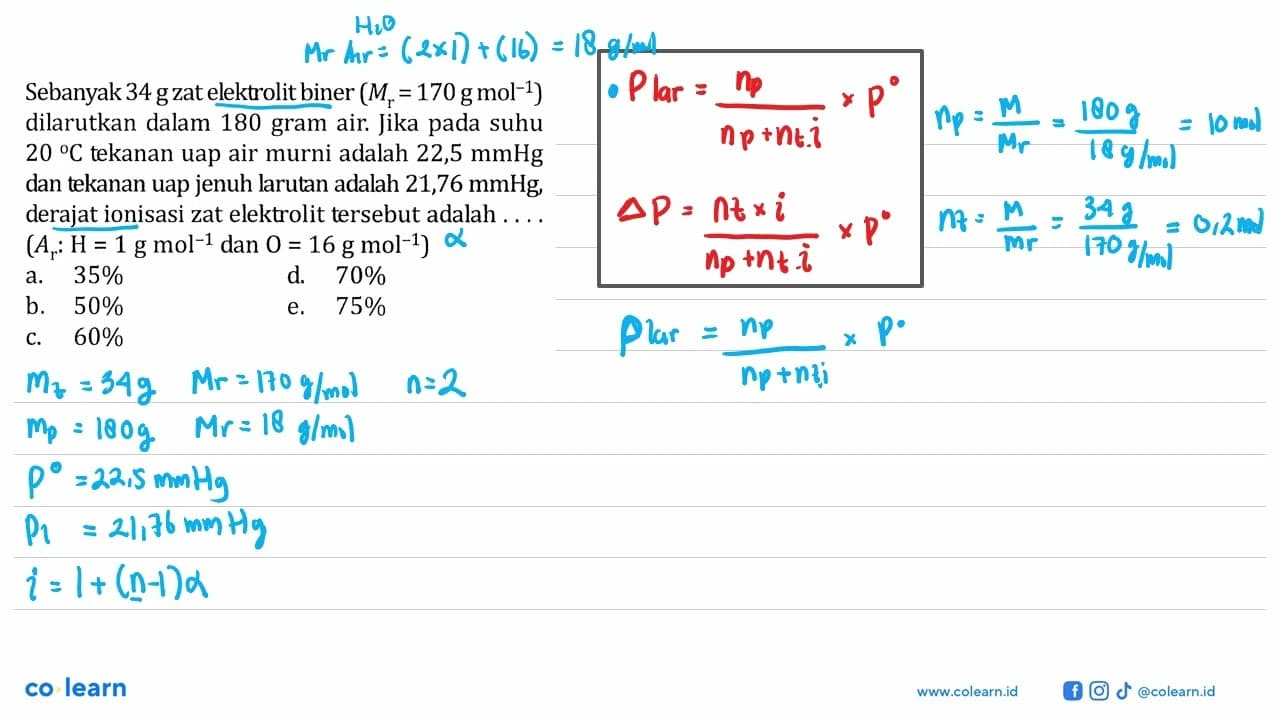 H₂O
Mr Ar = (2×1) + (16) = 18 g/mol
Sebanyak 34 g zat elektrolit biner (Mᵣ = 170 g mol⁻¹)
dilarutkan dalam 180 gram air. Jika pada suhu
20 °C tekanan uap air murni adalah 22,5 mmHg
dan tekanan uap jenuh larutan adalah 21,76 mmHg,
derajat ionisasi zat elektrolit tersebut adalah . . . .
(Aᵣ: H = 1 g mol⁻¹ dan O = 16 g mol⁻¹) α
a. 35% d. 70%
b. 50% e. 75%
c. 60%
• P lar = np / (np + nt.i) × P°
ΔP = (nt × i) / (np + nt.i) × P°
np = M/Mr = 180 g / 18 g/mol = 10 mol
nt = M/Mr = 34 g / 170 g/mol = 0,2 mol
Plar = np / (np + nt.i) × P°
mt = 34 g Mr = 170 g/mol n = 2
mp = 180 g Mr = 18 g/mol
P° = 22,5 mmHg
Pl = 21,76 mmHg
i = 1 + (n-1)α
co·learn
www.colearn.id
@colearn.id